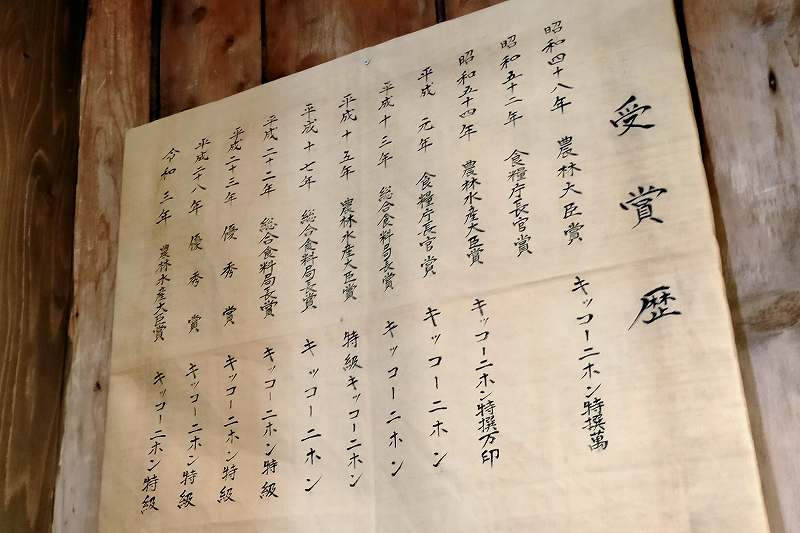 受賞歴
昭和四十八年 農林大臣賞 キッコーニホン特撰萬
昭和五十二年 食糧庁長官賞
昭和五十四年 農林水産大臣賞 キッコーニホン特撰万印
平成元年 食糧庁長官賞 キッコーニホン
平成十三年 総合食料局長賞 キッコーニホン
平成十五年 農林水産大臣賞 特級キッコーニホン
平成十七年 総合食料局長賞 キッコーニホン
平成二十二年 総合食料局長賞 キッコーニホン特級
平成二十三年 優秀賞 キッコーニホン特級
平成二十八年 優秀賞 キッコーニホン特級
令和三年 農林水産大臣賞 キッコーニホン特級